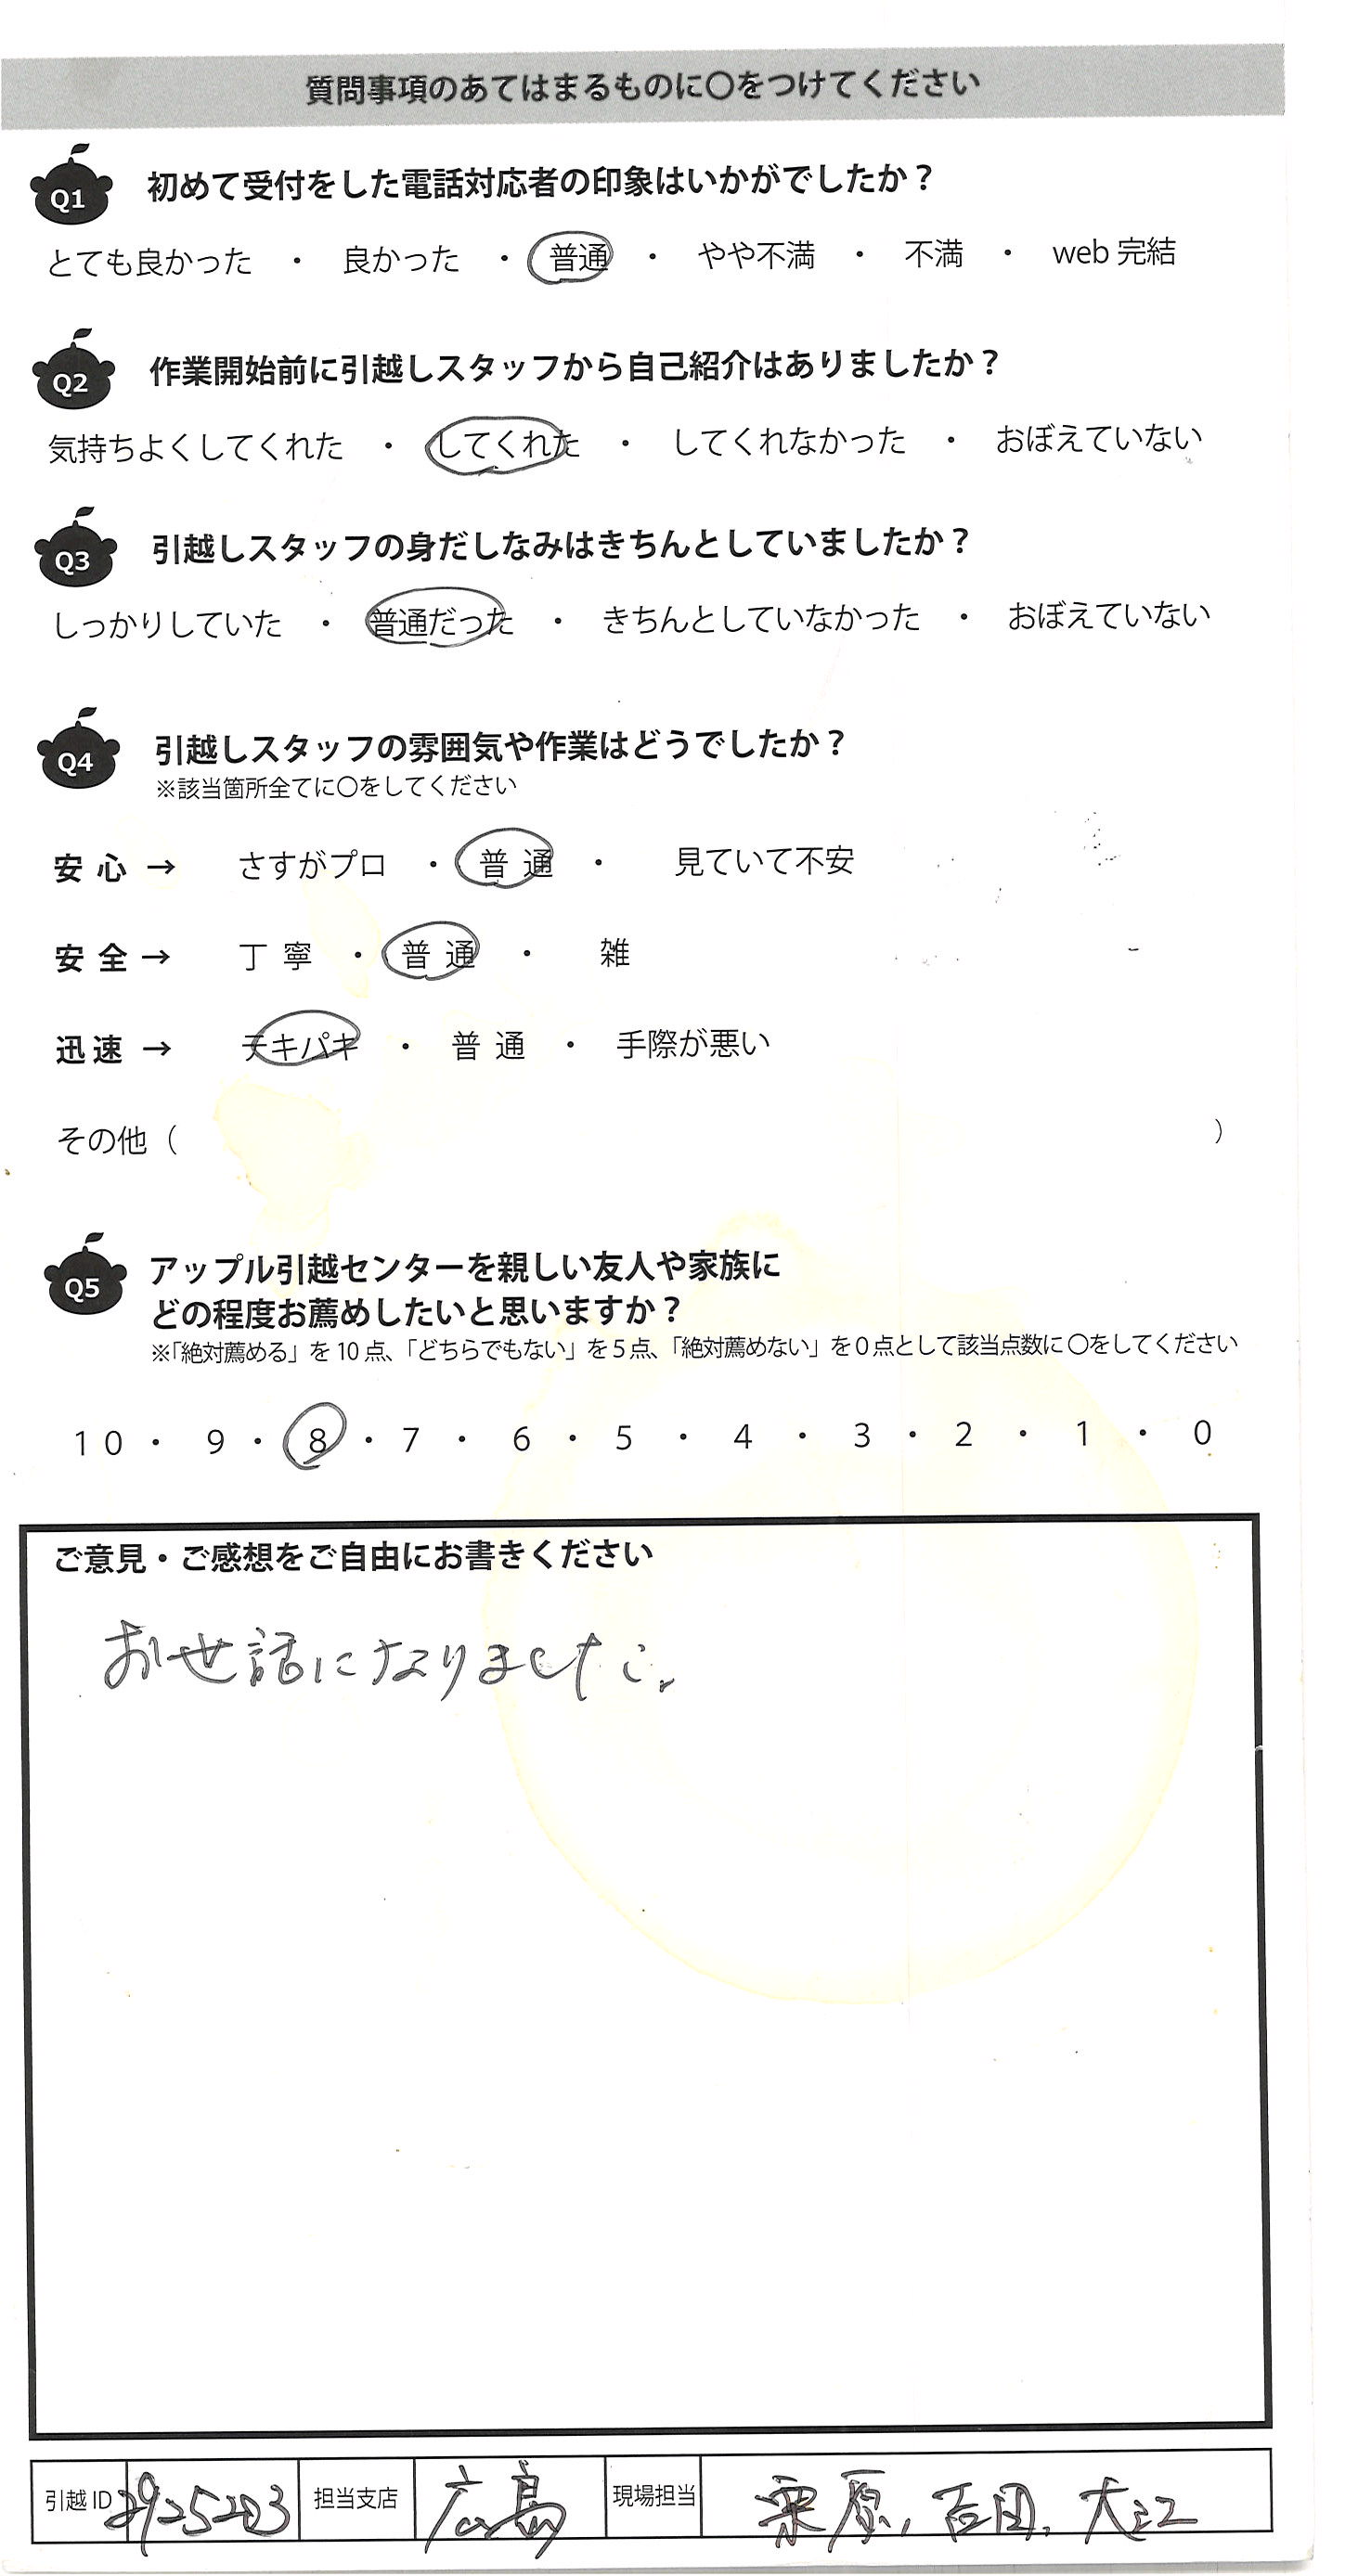 質問事項のあてはまるものに〇をつけてください
Q1 初めて受付をした電話対応者の印象はいかがでしたか？
とても良かった ・ 良かった ・ 普通 ・ やや不満 ・ 不満 ・ web 完結
Q2 作業開始前に引越しスタッフから自己紹介はありましたか？
気持ちよくしてくれた ・ してくれた ・ してくれなかった ・ おぼえていない
Q3 引越しスタッフの身だしなみはきちんとしていましたか？
しっかりしていた ・ 普通だった ・ きちんとしていなかった ・ おぼえていない
Q4 引越しスタッフの雰囲気や作業はどうでしたか？
※該当箇所全てに〇をしてください
安心 → さすがプロ ・ 普通 ・ 見ていて不安
安全 → 丁寧 ・ 普通 ・ 雑
迅速 → テキパキ ・ 普通 ・ 手際が悪い
その他（ ）
Q5 アップル引越センターを親しい友人や家族に
どの程度お薦めしたいと思いますか？
※「絶対薦める」を10点、「どちらでもない」を5点、「絶対薦めない」を0点として該当点数に〇をしてください
10 ・ 9 ・ 8 ・ 7 ・ 6 ・ 5 ・ 4 ・ 3 ・ 2 ・ 1 ・ 0
ご意見・ご感想をご自由にお書きください
お世話になりました。
引越ID 担当支店 広島 現場担当 栗原、吉田、大江